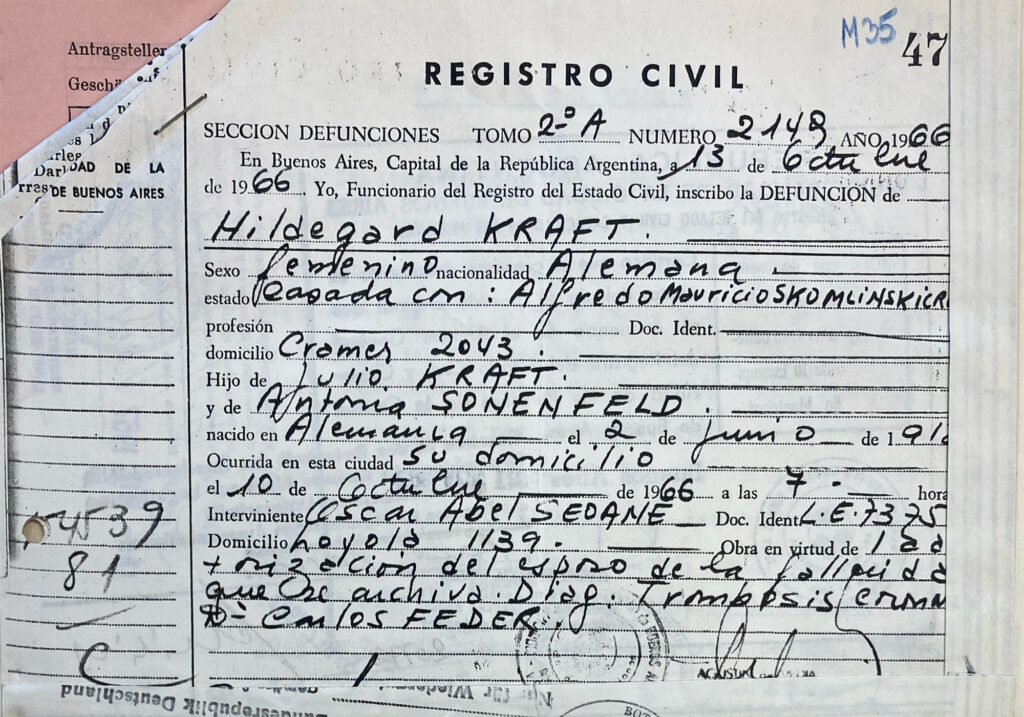 M35 47
Antragsteller
REGISTRO CIVIL
SECCION DEFUNCIONES TOMO 2º A NUMERO 2149 AÑO 1966
En Buenos Aires, Capital de la República Argentina, a 13 de Octubre
de 1966 Yo, Funcionario del Registro del Estado Civil, inscribo la DEFUNCIÓN de
DAD DE LA
DE BUENOS AIRES
Hildegard KRAFT.
Sexo femenino nacionalidad Alemana
estado Casada con: Alfredo Mauricio SKOMLINSKI
profesión Doc. Ident.
domicilio Cramer 2043.
Hijo de Julio KRAFT.
y de Antonia SONENFELD.
nacido en Alemania el 2 de junio de 191
Ocurrida en esta ciudad su domicilio
el 10 de Octubre de 1966 a las 7. hora
Interviniente Oscar Abel SEOANE Doc. Ident. L.E. 7375
Domicilio Loyola 1139. Obra en virtud de la au
torización del esposo de la fallecida
que se archiva. Diag: Trombosis coron
Dr. Carlos FEDER.
4539
81
C
Nur für Wieder
Bundesrepublik Deutschland